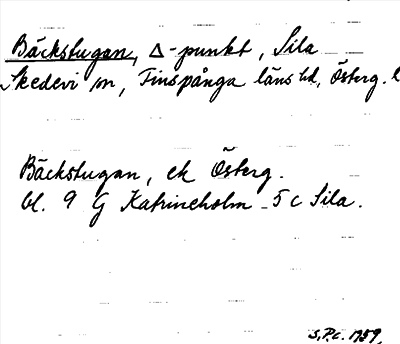 Bäckstugan, Δ-punkt, Sila
Skedevi sn, Finspånga läns hd, Österg. l
Bäckstugan, ek Österg.
bl. 9 G Katrineholm - 5c Sila.
S.P.c. 1959.